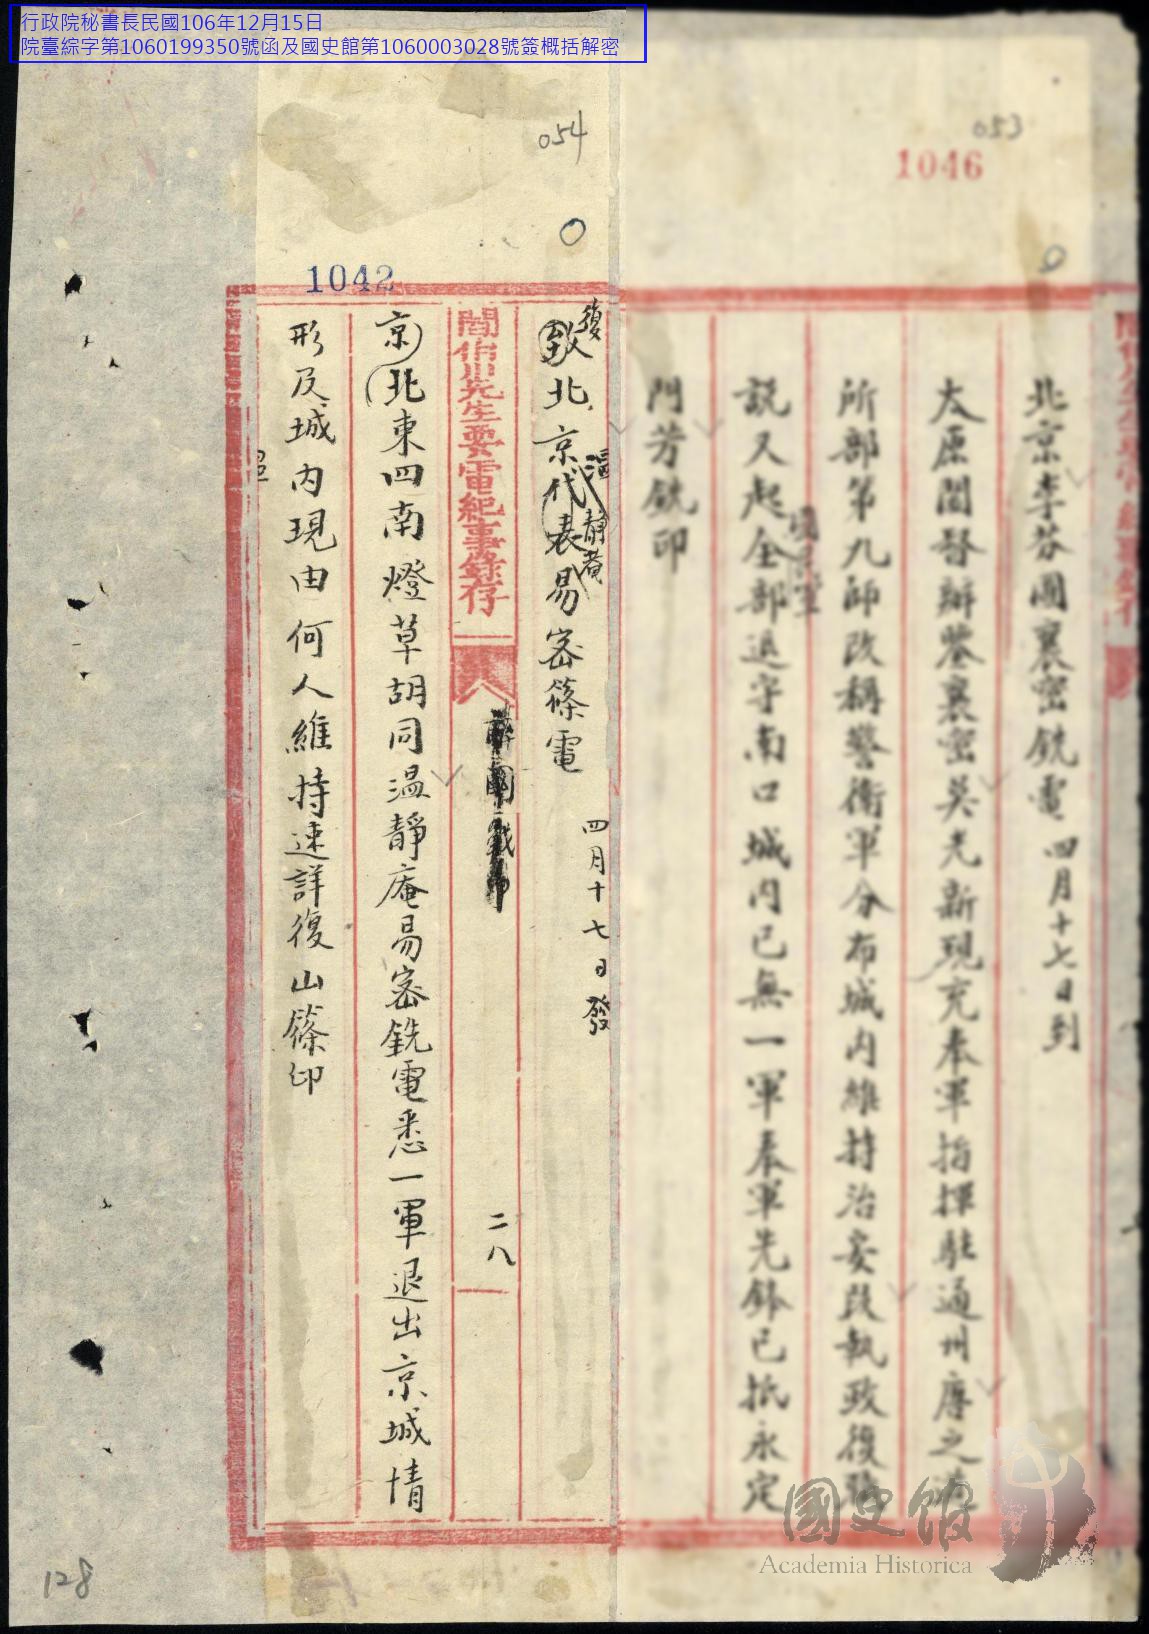 行政院秘書長民國106年12月15日
院臺綜字第1060199350號函及國史館第1060003028號簽概括解密
053
1046
北京李芬圃襄密銑電 四月十七日到
太原閻督辦鑒襄密吳光新現充奉軍指揮駐通州唐之道
所部第九師改稱警衛軍分布城内維持治安段執政復職
説又起全部退守南口城内已無一軍奉軍先鋒已抵永定
門芳銑印
054
1042
復
致北京代表易密篠電 四月十七日發
温靜菴
閻伯川先生要電紀事錄存
二八
京北東四南燈草胡同温靜庵易密銑電悉一軍退出京城情
形及城内現由何人維持速詳復山篠印
128
國史館
Academia Historica